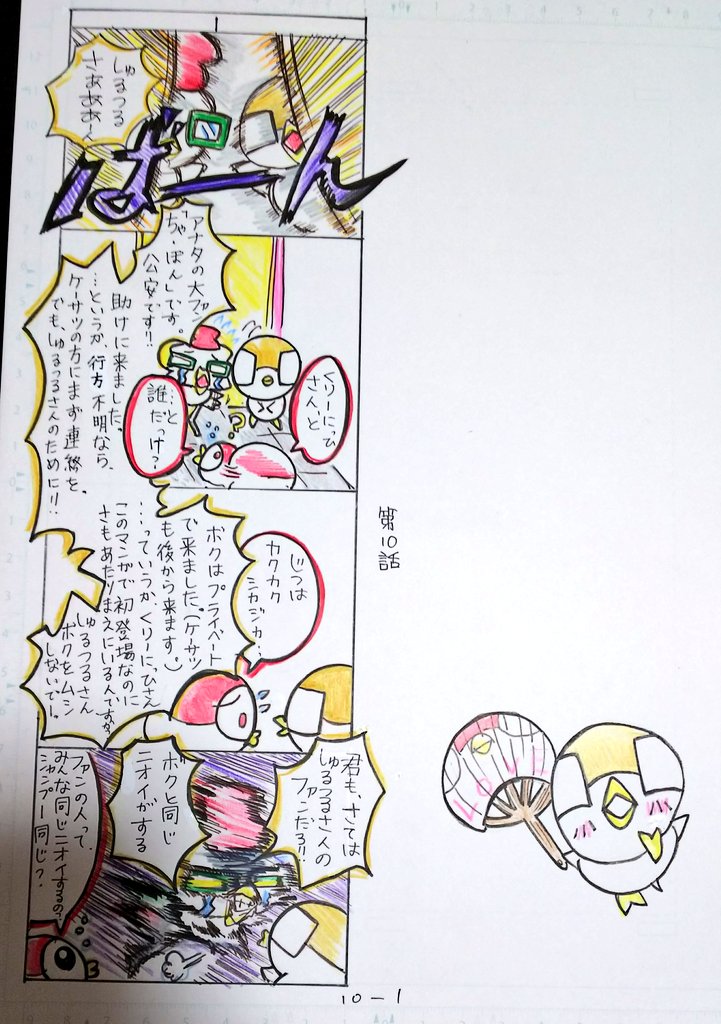 第10話
1
しゅるつる
さぁぁぁ〜ん
ばーん
「アナタの大ファン
「ちゃ・ぽん」です。
公安です!!
助けに来ました。
…というか、行方不明なら、
ケーサツの方にまず連絡を。
でも、しゅるつるさんのために!!
くりーにっひ
さん、と
…と
誰だっけ?
じつは
カクカク
シカジカ…
ボクはプライベート
で来ました。(ケーサツ
も後から来ます。)
…っていうか、くりーにっひさん
このマンガで初登場なのに
さもあたりまえにいる人ですか。
しゅるつるさん
ボクをムシ
しないでー。
君も、さては
しゅるつるさんの
ファンだろ!!
ボクと同じ
ニオイがする
ファンの人って、
みんな同じニオイするの?
シャンプー同じ?
LOVE
10-1